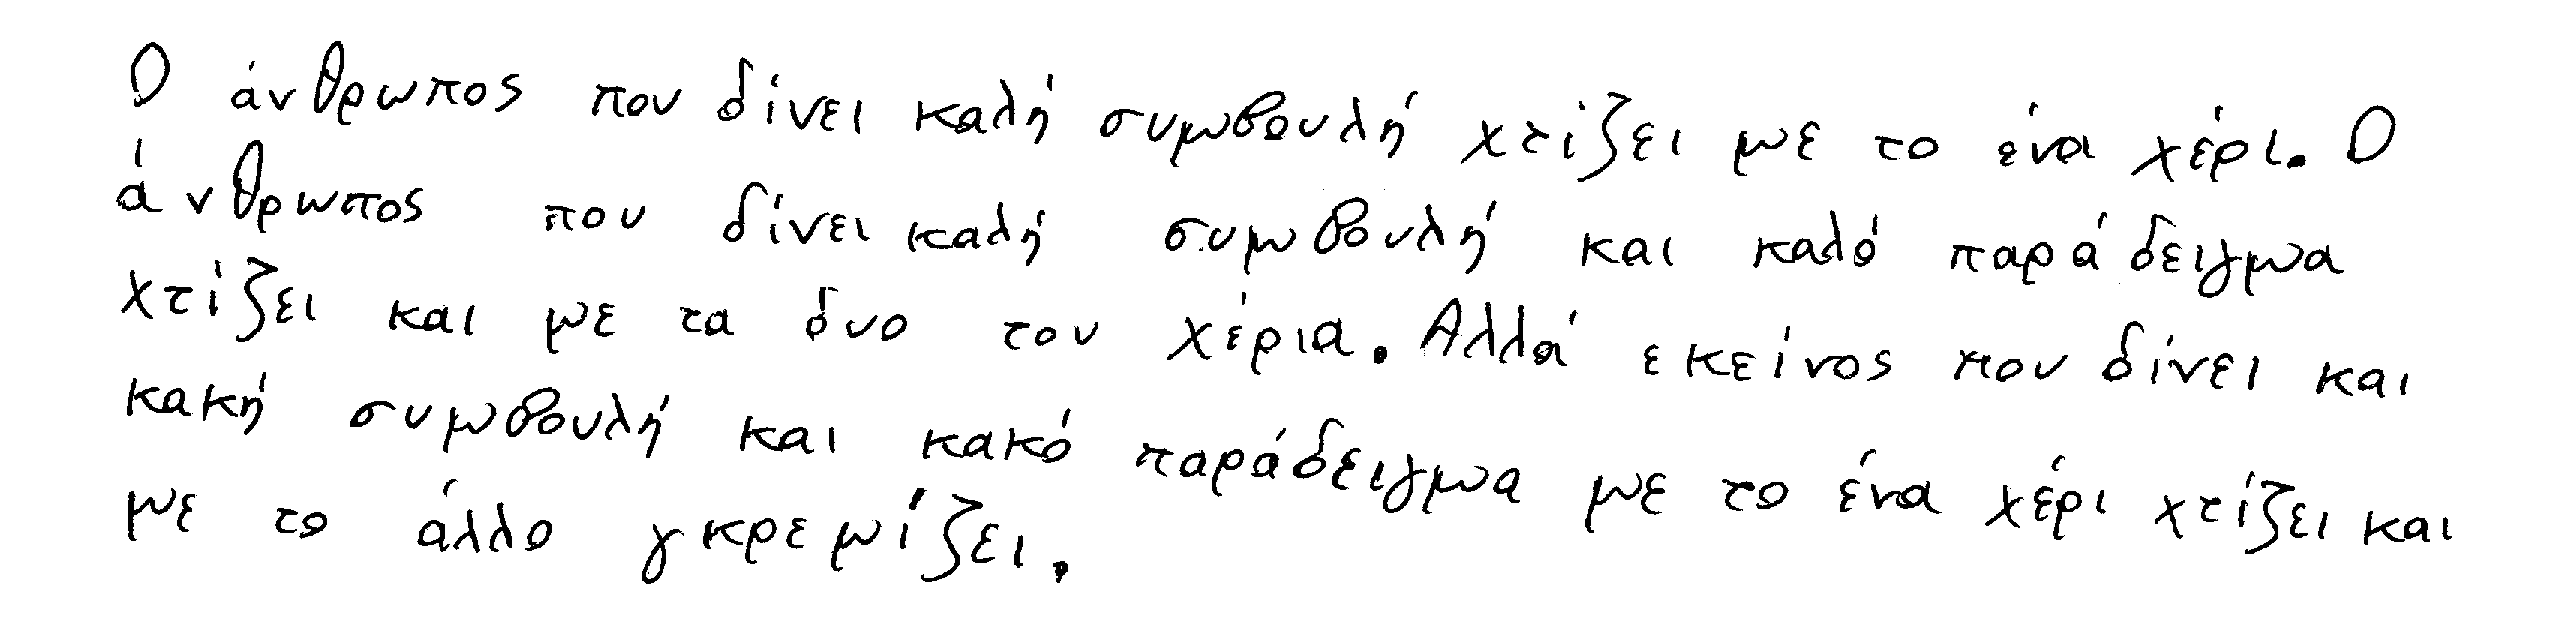 Ο άνθρωπος που δίνει καλή συμβουλή χτίζει με το ένα χέρι. Ο
άνθρωπος που δίνει καλή συμβουλή και καλό παράδειγμα
χτίζει και με τα δυο του χέρια. Αλλά εκείνος που δίνει και
κακή συμβουλή και κακό παράδειγμα με το ένα χέρι χτίζει και
με το άλλο γκρεμίζει.